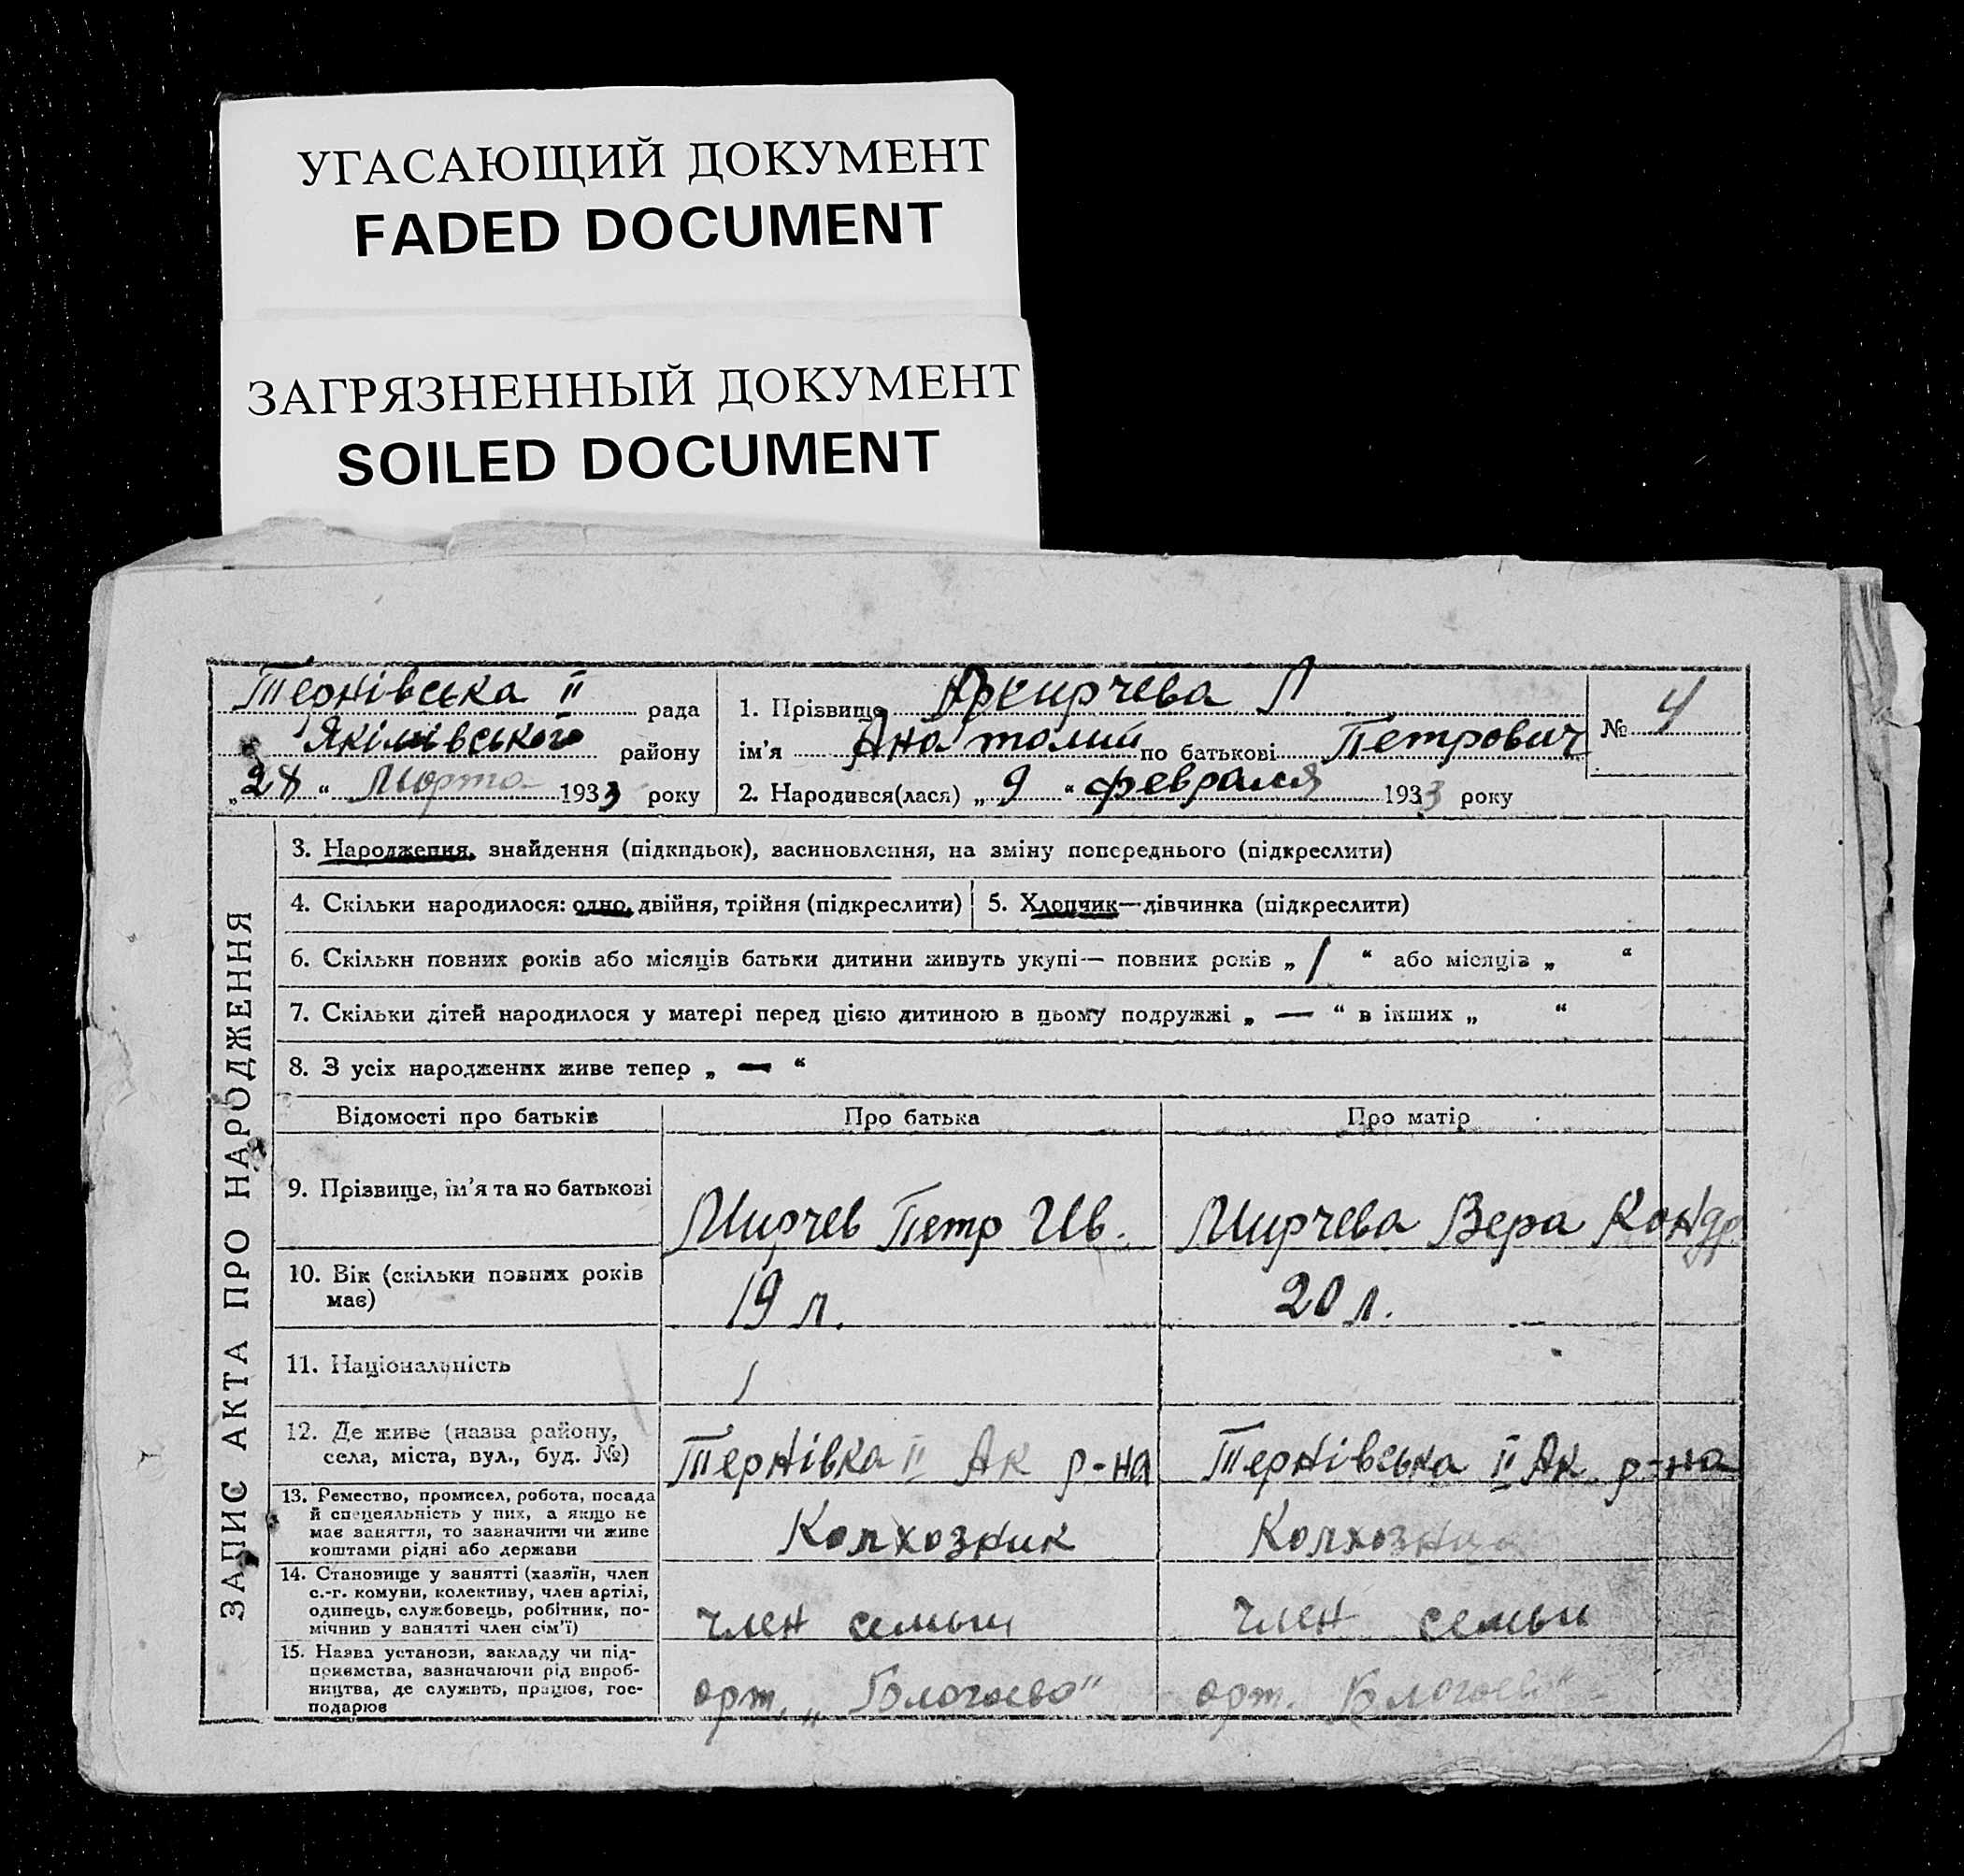 УГАСАЮЩИЙ ДОКУМЕНТ
FADED DOCUMENT
ЗАГРЯЗНЕННЫЙ ДОКУМЕНТ
SOILED DOCUMENT
Тернівська II рада
Якімівського району
„28“ Марта 1933 року
1. Прізвище
ім'я Анатолий по батькові Петрович
2. Народився(лася) „9“ февраля 1933 року
№ 4
ЗАПИС АКТА ПРО НАРОДЖЕННЯ
3. Народження, знайдення (підкидьок), засиновлення, на зміну попереднього (підкреслити)
4. Скільки народилося: одно, двійня, трійня (підкреслити) 5. Хлопчик—дівчинка (підкреслити)
6. Скільки повних років або місяців батьки дитини живуть укупі— повних років „ 1 “ або місяців „ “
7. Скільки дітей народилося у матері перед цією дитиною в цьому подружжі „ — “ в інших „ “
8. З усіх народжених живе тепер „ — “
Відомості про батьків Про батька Про матір
9. Прізвище, ім'я та по батькові Мирчев Петр Ив. Мирчева Вера Кондр
10. Вік (скільки повних років
має) 19 л. 20 л.
11. Національність
12. Де живе (назва району,
села, міста, вул., буд. №) Тернівка II Ак р-на Тернівська II Ак. р-на
13. Ремество, промисел, робота, посада
й спецеяльність у них, а якщо не
має заняття, то зазначити чи живе
коштами рідні або держави Колхозник
14. Становище у занятті (хазяїн, член
с.-г. комуни, колективу, член артілі,
одинець, службовець, робітник, по-
мічник у занятті член сім'ї) член семьи член семьи
15. Назва установи, закладу чи під-
приємства, зазначаючи рід вироб-
ництва, де служить, працює, гос-
подарює орт. орт.